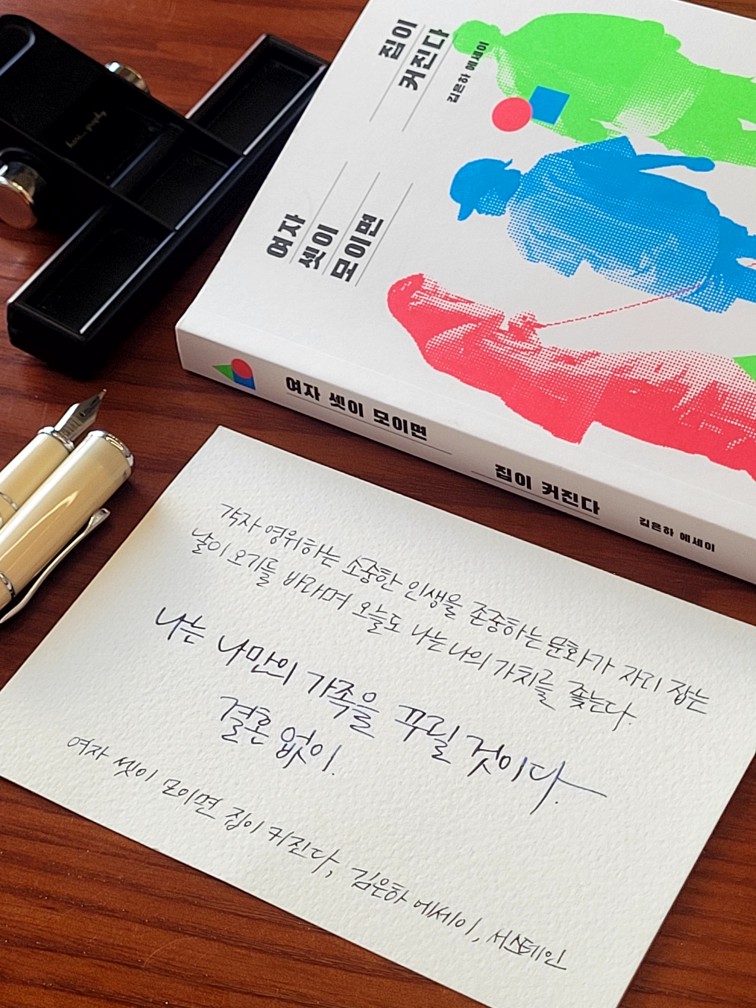 집이
커진다
김은하 에세이
여자
셋이
모이면
여자 셋이 모이면
집이 커진다
김은하 에세이
각자 영위하는 소중한 인생을 존중하는 문화가 자리 잡는
날이 오기를 바라며 오늘도 나는 나의 가치를 좇는다.
나는 나만의 가족을 꾸릴 것이다.
결혼 없이.
여자 셋이 모이면 집이 커진다, 김은하 에세이, 서스테인